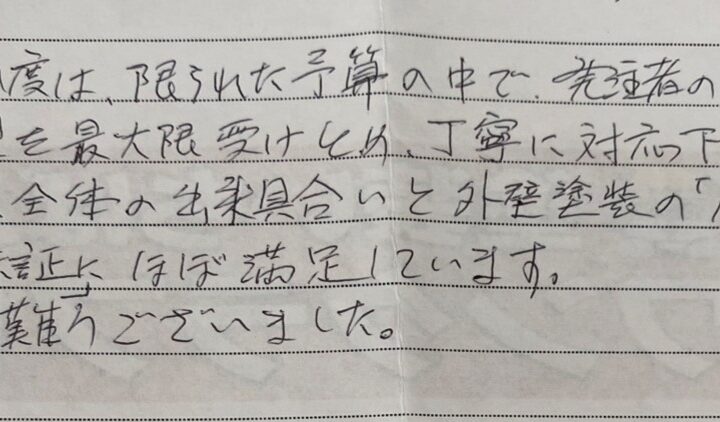 度は、限られた予算の中で、発注者の
を最大限受けとめ、丁寧に対応下
全体の出来具合いと外壁塗装の「
証」に ほぼ満足しています。
難うございました。